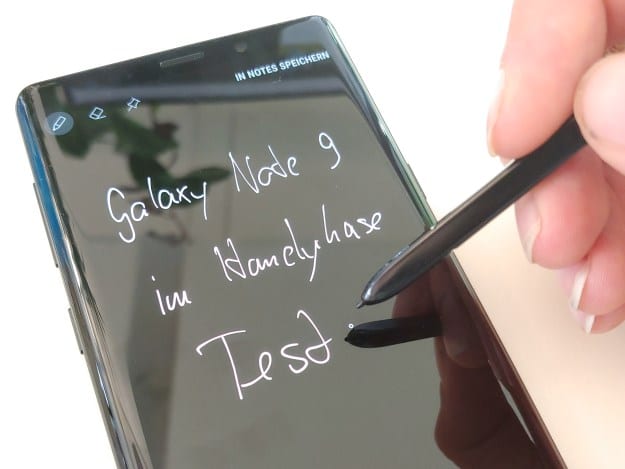 IN NOTES SPEICHERN
Galaxy Note 9
im Handyhase
Test